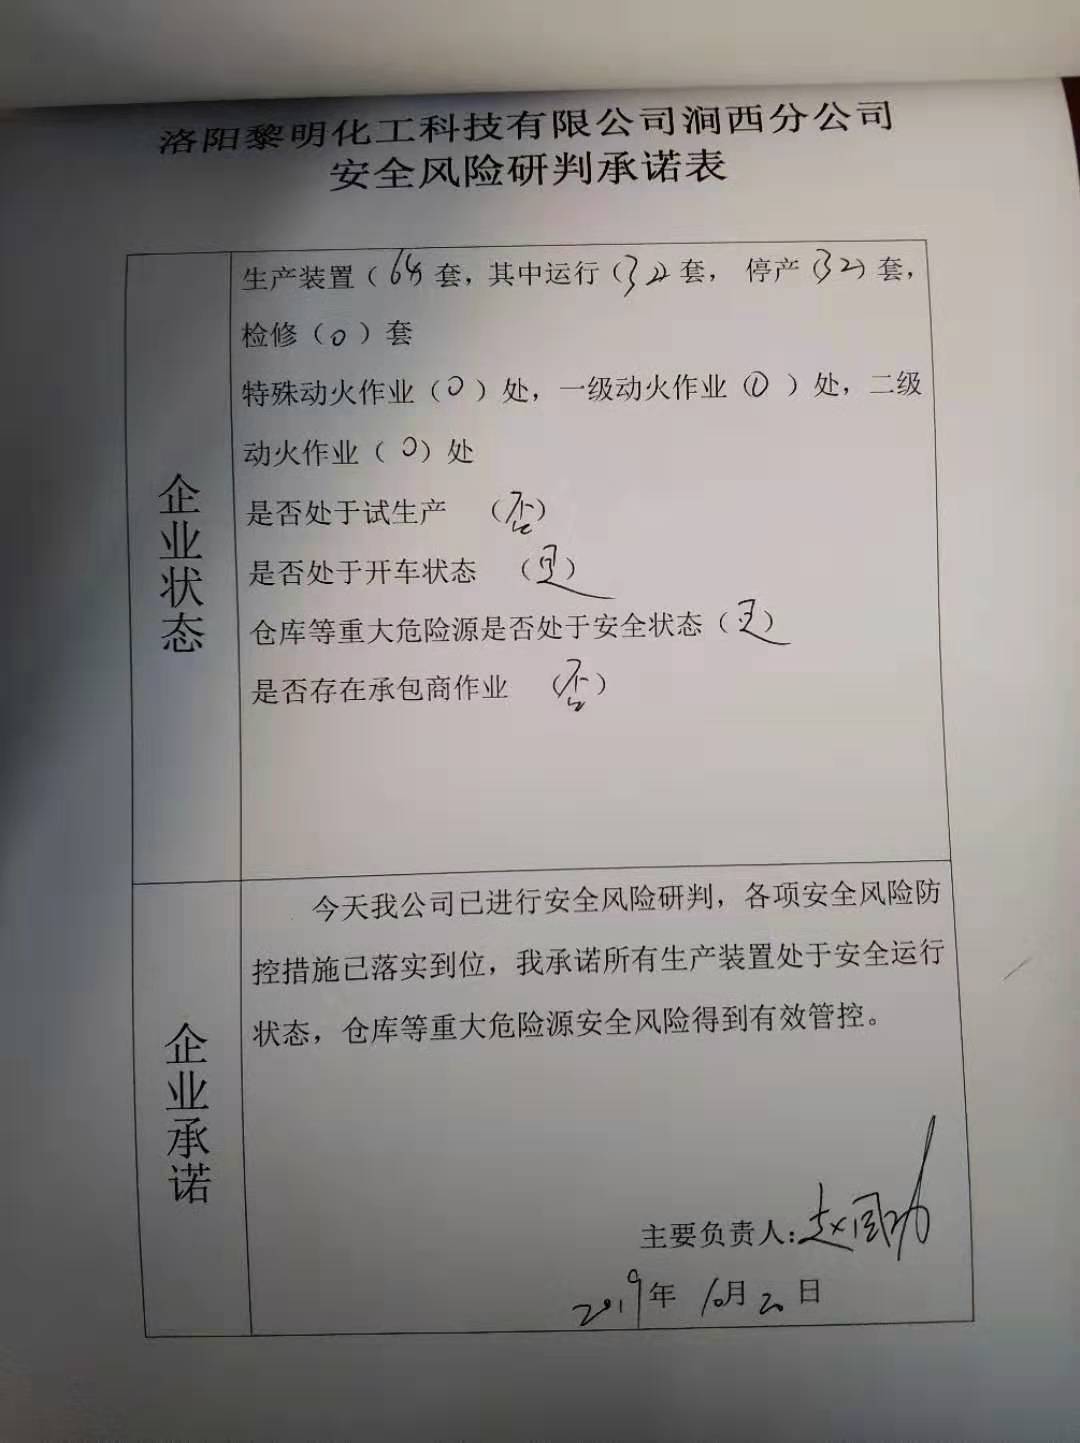 洛阳黎明化工科技有限公司涧西分公司
安全风险研判承诺表
生产装置（64套，其中运行（32套， 停产（32）套，
检修（0）套
特殊动火作业（0）处，一级动火作业（0）处，二级
动火作业（0）处
是否处于试生产 （否）
是否处于开车状态 （是）
仓库等重大危险源是否处于安全状态（是）
是否存在承包商作业 （否）
企业状态
今天我公司已进行安全风险研判，各项安全风险防
控措施已落实到位，我承诺所有生产装置处于安全运行
状态，仓库等重大危险源安全风险得到有效管控。
企业承诺
主要负责人：赵国
2019年 10月20日